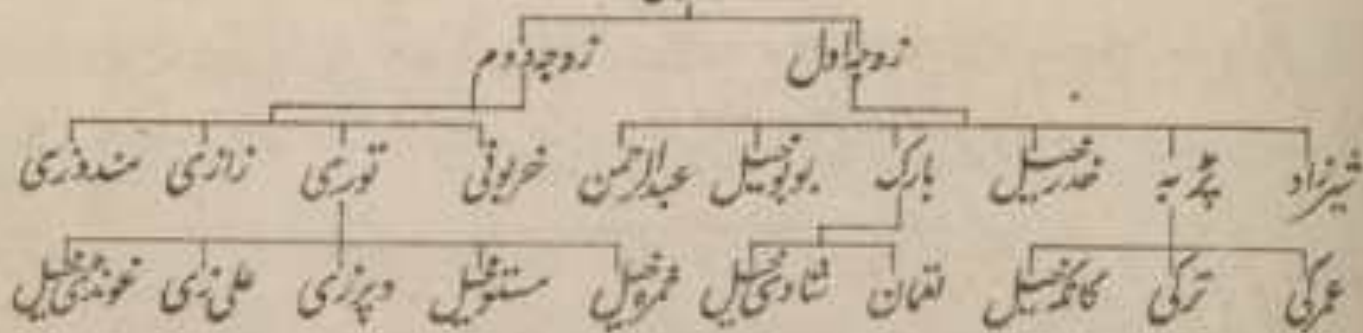 زوجه اول زوجه دوم
شیرزاد پڑبہ خدرخیل بارک بوبوخیل عبدالرحمن خربوتی توری زازی مندوزی
عمرگی ترکی کاکہ خیل لقمان شادی خیل عمروخیل ستوخیل دپرزی علی زی غوندی خیل